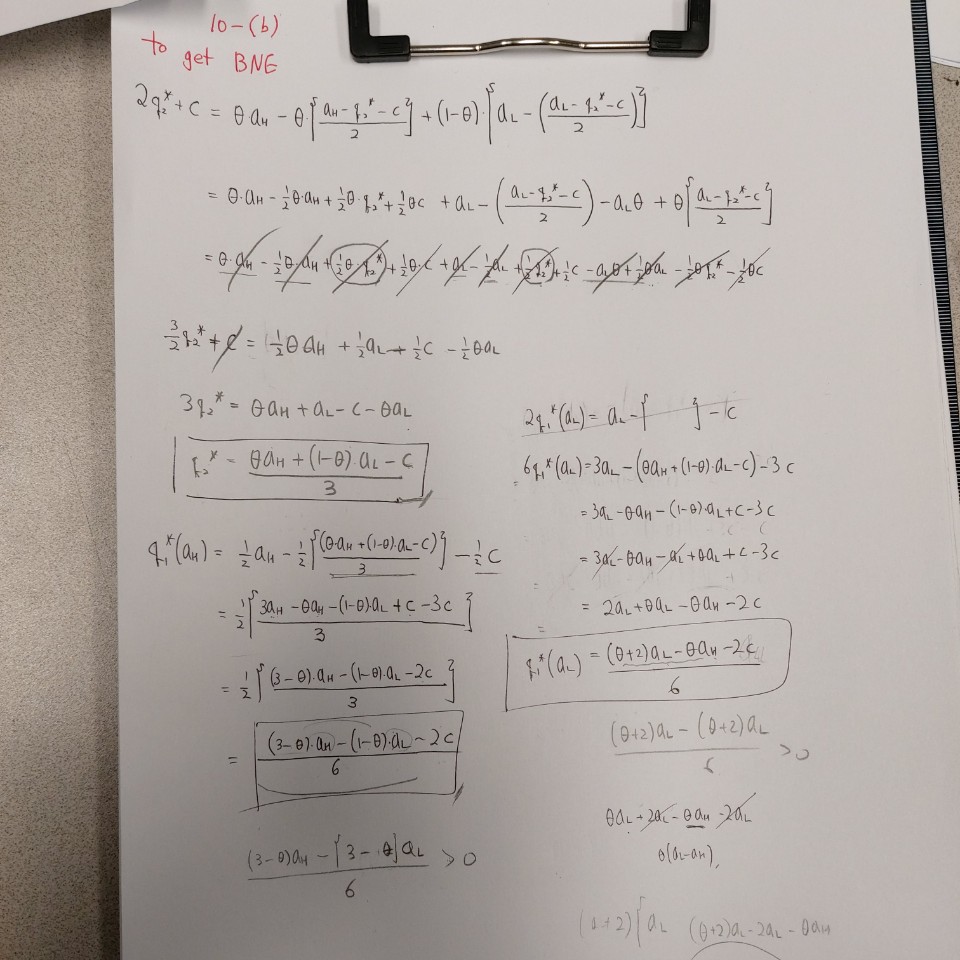 10-(b)
to get BNE
2q₂* + c = θ a_H - θ·[(a_H - q₂* - c)/2] + (1-θ)·[a_L - ((a_L - q₂* - c)/2)]
= θ·a_H - ½θ·a_H + ½θ·q₂* + ½θc + a_L - ((a_L - q₂* - c)/2) - a_Lθ + θ[(a_L - q₂* - c)/2]
= θ·a_H - ½θ·a_H + ½θ·q₂* + ½θ·c + a_L - ½a_L + ½q₂* + ½c - a_Lθ + ½θa_L - ½θq₂* - ½θc
3/2 q₂* + c = ½θa_H + ½a_L + ½c - ½θa_L
3q₂* = θa_H + a_L - c - θa_L
q₂* = (θa_H + (1-θ)·a_L - c)/3
q₁*(a_H) = ½a_H - ½[(θ·a_H + (1-θ)·a_L - c)/3] - ½c
= ½[(3a_H - θa_H - (1-θ)·a_L + c - 3c)/3]
= ½[((3-θ)·a_H - (1-θ)·a_L - 2c)/3]
= ((3-θ)·a_H - (1-θ)·a_L - 2c)/6
((3-θ)a_H - [3-θ]a_L)/6 > 0
2q₁*(a_L) = a_L - [ ] - c
6q₁*(a_L) = 3a_L - (θa_H + (1-θ)·a_L - c) - 3c
= 3a_L - θa_H - (1-θ)·a_L + c - 3c
= 3a_L - θa_H - a_L + θa_L + c - 3c
= 2a_L + θa_L - θa_H - 2c
q₁*(a_L) = ((θ+2)a_L - θa_H - 2c)/6
((θ+2)a_L - (θ+2)a_L)/6 > 0
θa_L + 2a_L - θa_H - 2a_L
θ(a_L - a_H),
(θ+2)a_L - 2a_L - θa_H